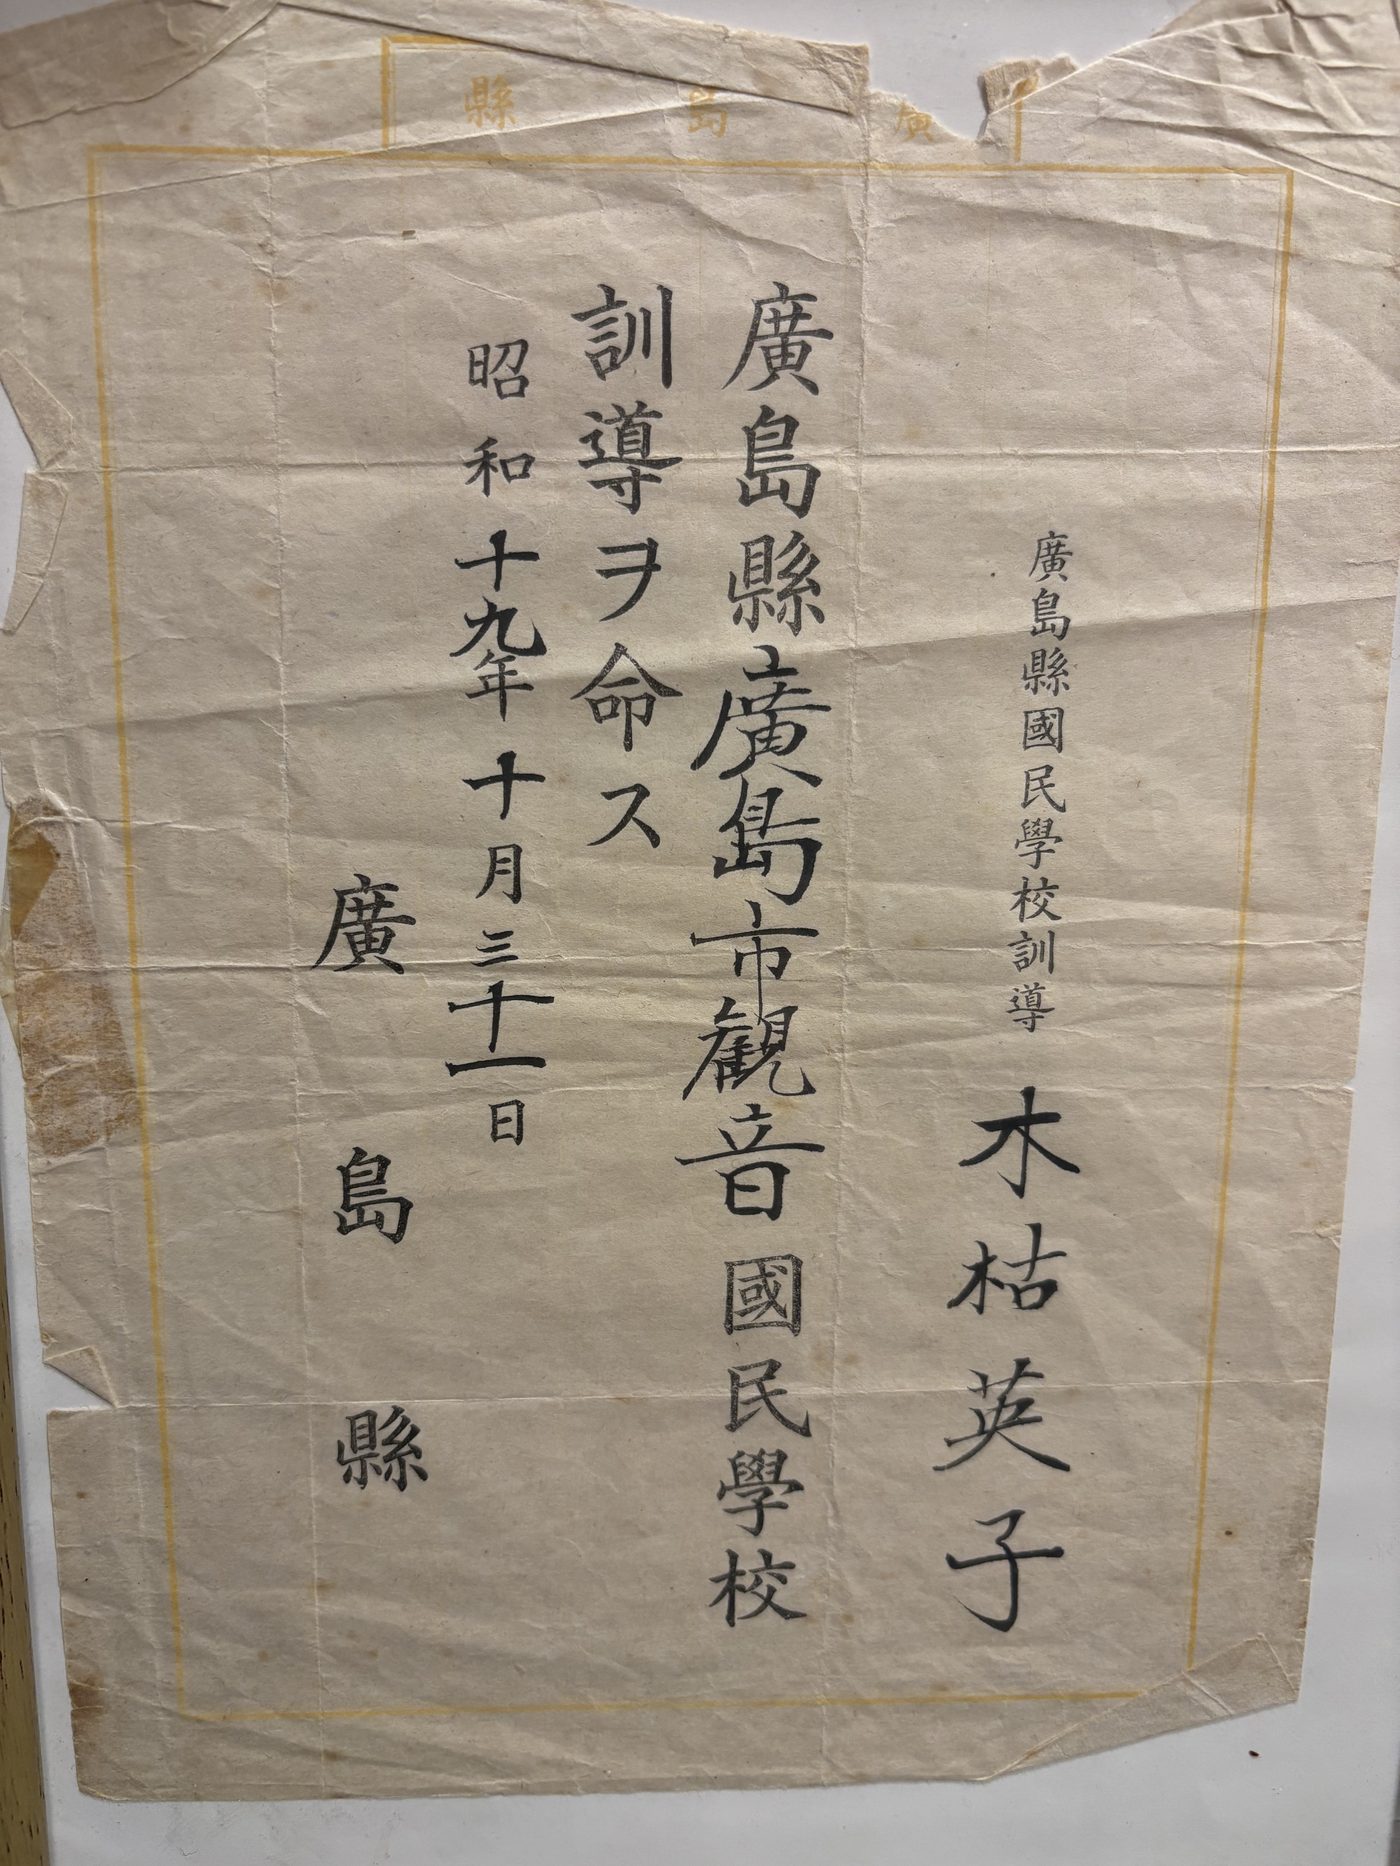 廣島縣
廣島縣國民學校訓導 木枯英子
廣島縣廣島市観音國民學校
訓導ヲ命ス
昭和十九年十月三十一日
廣島縣